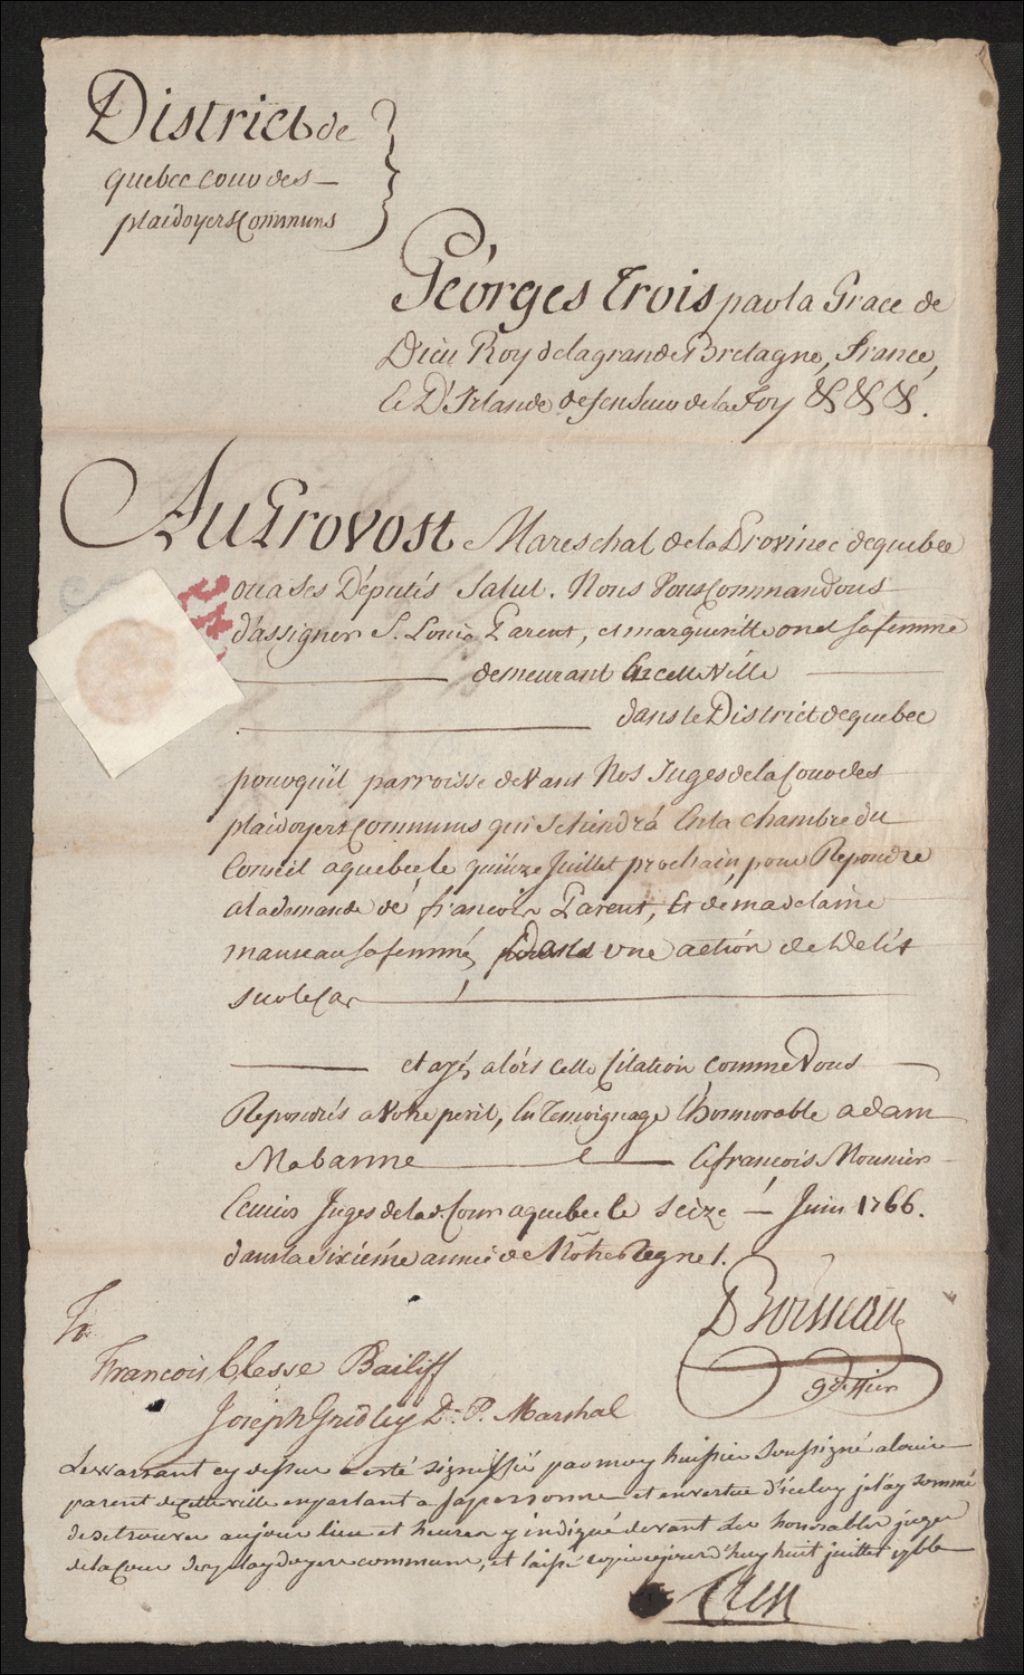 District de
quebec cour des
plaidoyers Communs
Géorges Trois par la Grace de
Dieu Roy de la grande Bretagne, france,
Et D'Irlande defenseur de la foy &c &c &c.
Au Provost Mareschal de la Province de quebec
ou a ses Députés Salut. Nous Vous Commandons
d'assigner S. Louis Parent, et margueritte sa femme
demeurant En cette Ville
dans le District de quebec
pour quil parroisse devant Nos Juges de la Cour des
plaidoyers Communs qui se tiendra En la chambre du
Conseil a quebec le quinze Juillet prochain, pour Repondre
a la demande de francois Parent, Et de madelaine
sa femme, dans une action de Delit
sur le Cas
et ayés alors cette Citation comme Vous
Repondrés a Votre peril, En Temoignage L'honnorable adam
Mabanne Et francois Mounier
Ecuiers Juges de lad. Cour a quebec le seize Juin 1766.
dans la sixiéme année de Nôtre Regne /.
D Boisseau
greffier
To
Francois Clesse Bailiff
Joseph Gridley D. P. Marshal
Le warrant cy dessus a esté signiffié par moy huissier soussigné a louis
parent de Cette ville en parlant a sa personne et en vertue d'iceluy je l'ay sommé
de se trouver au jour lieu et heure y indiqué devant Les honorables juges
de la Cour des playdoyers communs, et laissé copie ce jourd'huy huit juillet 1766
Cless